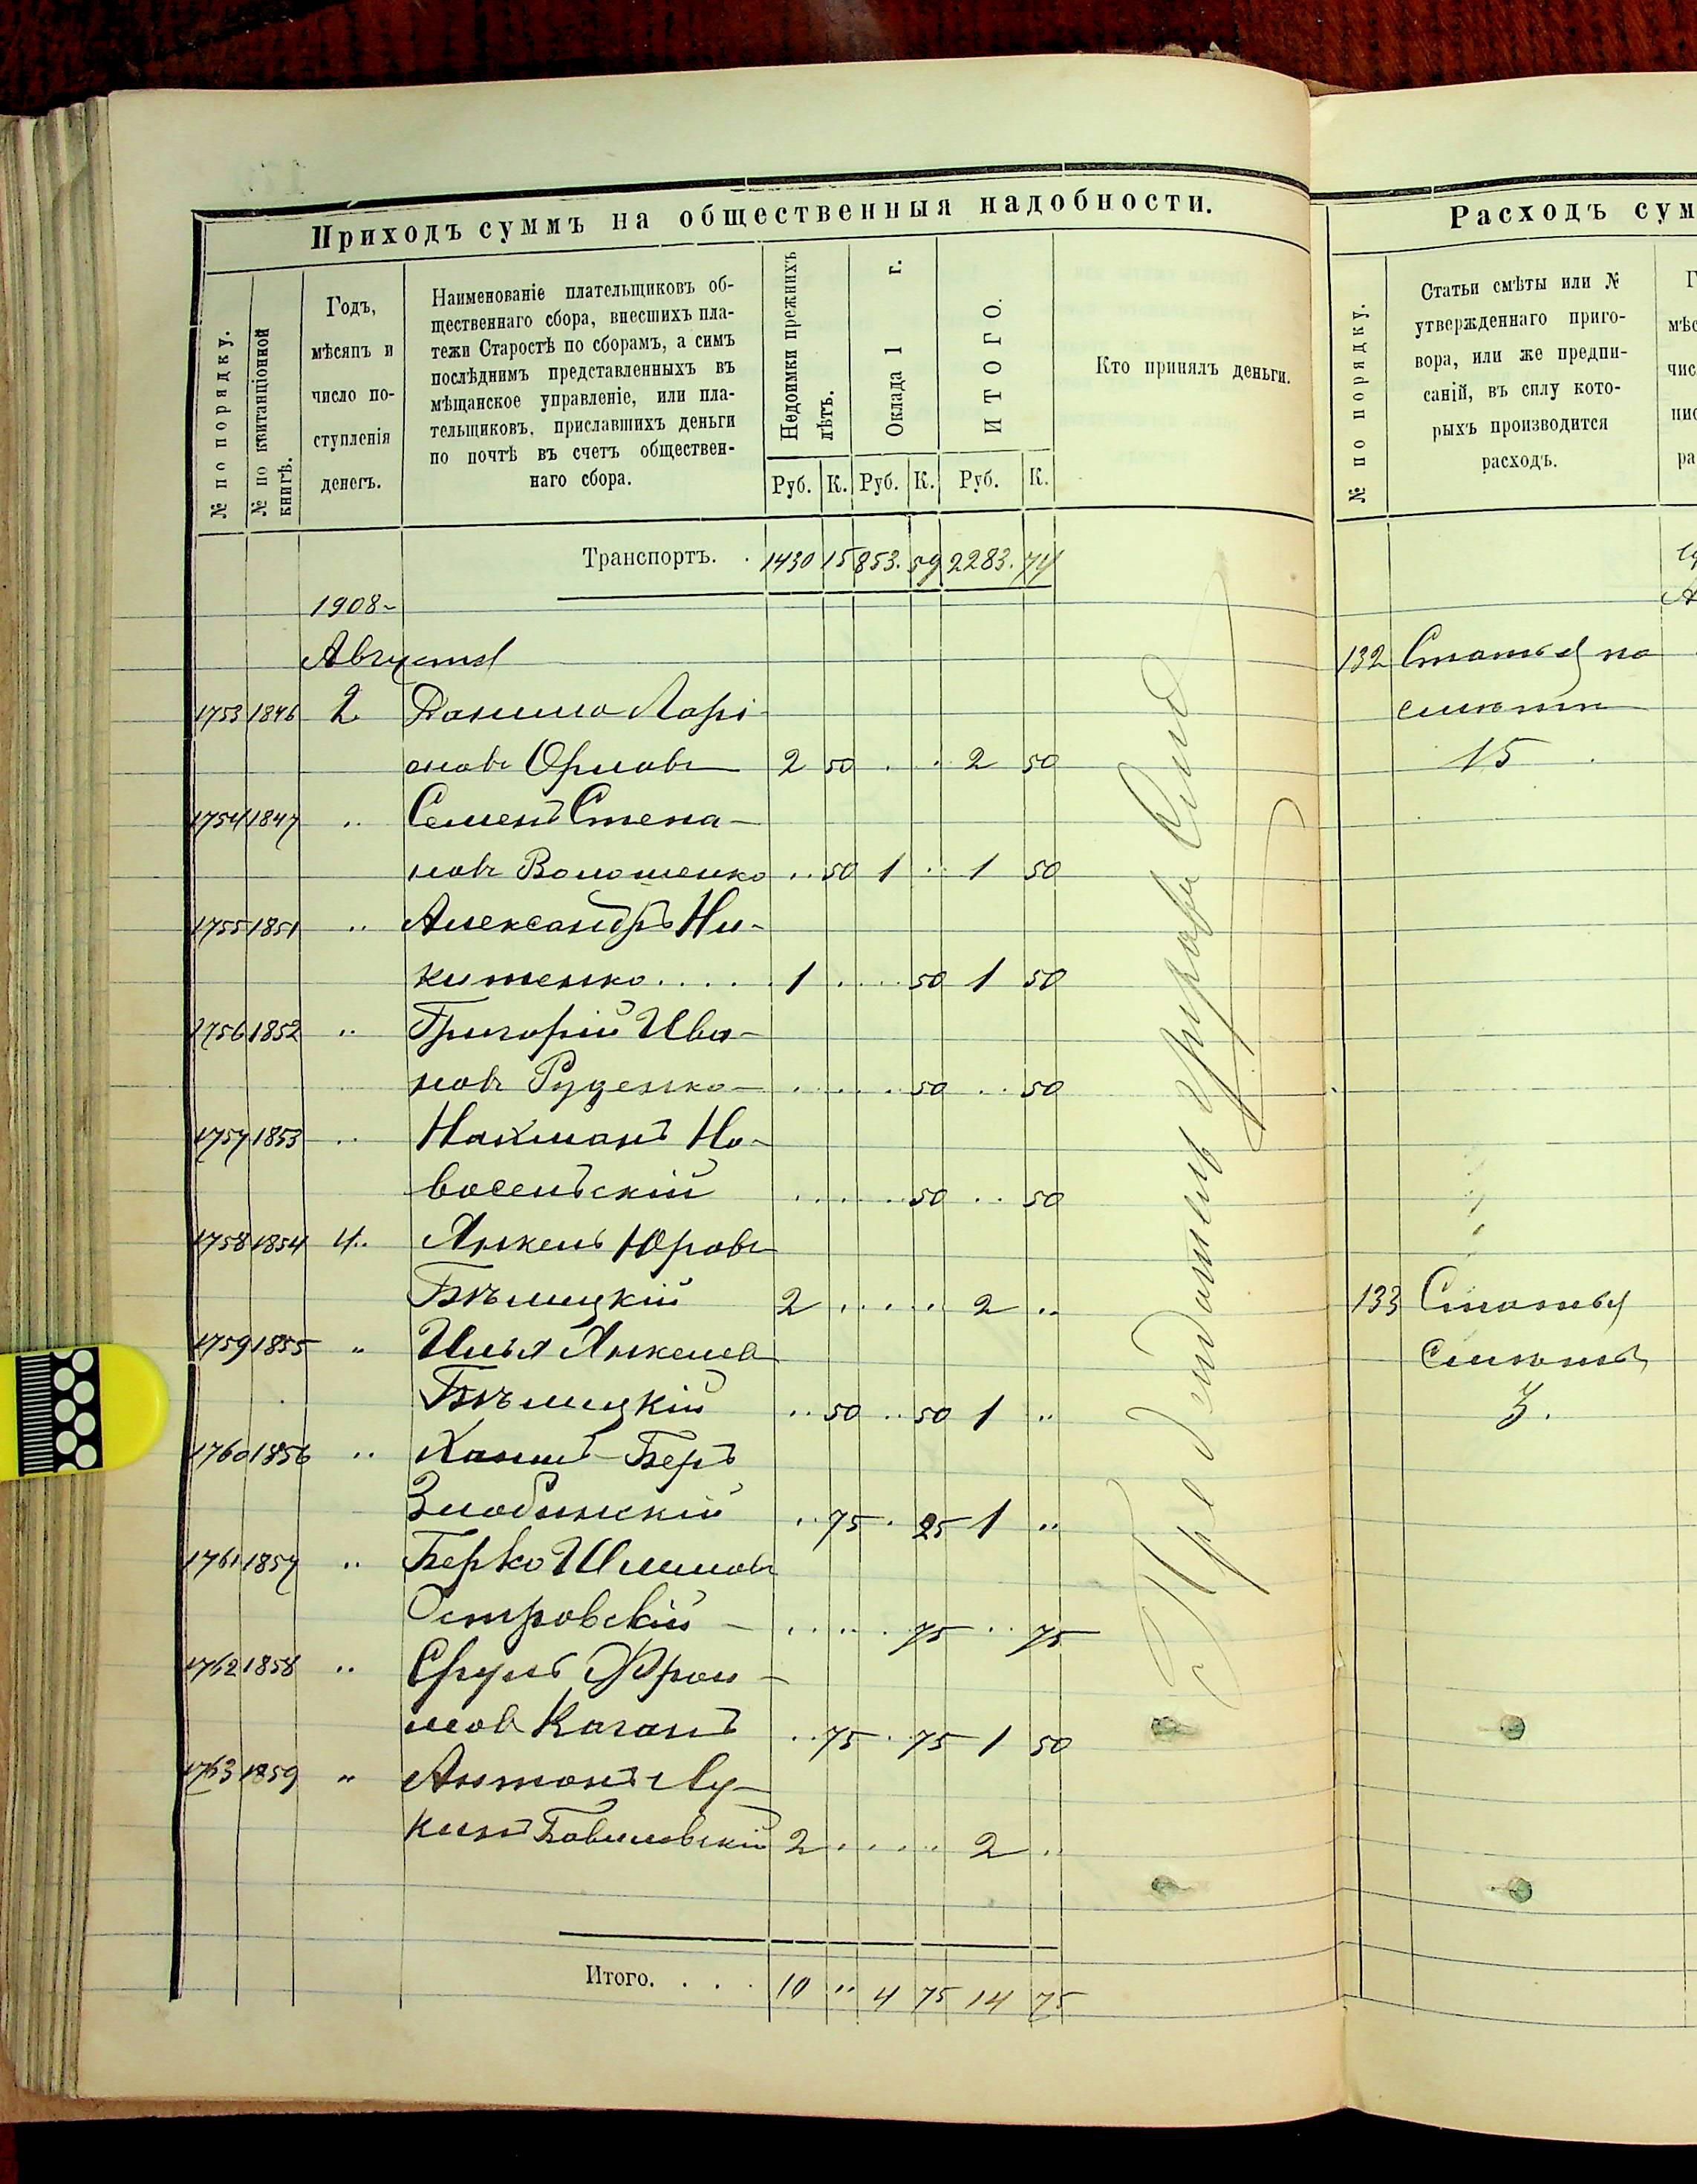 Приходъ суммъ на общественныя надобности.
№ по порядку.
№ по квитанціонной
книгѣ.
Годъ,
мѣсяцъ и
число по-
ступленія
денегъ.
Наименованіе плательщиковъ об-
щественнаго сбора, внесшихъ пла-
тежи Старостѣ по сборамъ, а симъ
послѣднимъ представленныхъ въ
мѣщанское управленіе, или пла-
тельщиковъ, приславшихъ деньги
по почтѣ въ счетъ обществен-
наго сбора.
Недоимки прежнихъ
лѣтъ.
Оклада 1 г.
ИТОГО.
Кто принялъ деньги.
Руб. К. Руб. К. Руб. К.
Транспортъ. . 1430 15 853. 59 2283. 74
1908-
Августа
1753 1846 2
новъ Орловъ 2 50 . . 2 50
1754 1847 .. Семенъ Степа-
новъ Волошенко .. 50 1 .. 1 50
1755 1851 .. Александръ Ни-
китенко..... 1 .... 50 1 50
1756 1852 .. Григорій Ива-
новъ Руденко - ..... 50 .. 50
1757 1853 .. Нахманъ Но-
восельскій ...... 50 .. 50
1758 1854 4.. Янкель Юровъ
Бѣлицкій 2 ..... 2 ..
1759 1855 .. Илья Янкелев
Бѣлицкій .. 50 .. 50 1 ..
1760 1856 .. Беръ
Злобинскій .. 75 . 25 1 ..
1761 1857 .. Берко Шлиомовъ
Островскій - ..... 75 .. 75
1762 1858 .. Сруль Фрои-
мов Каганъ .. 75 . 75 1 50
1763 1859 .. Антонъ Лу-
кинъ 2 ..... 2 ..
Итого. . . . 10 .. 4 75 14 75
Расходъ сум
№ по порядку.
Статьи смѣты или №
утвержденнаго приго-
вора, или же предпи-
саній, въ силу кото-
рыхъ производится
расходъ.
132 Статья по
смѣтѣ
15
133 Статья
смѣты
3.